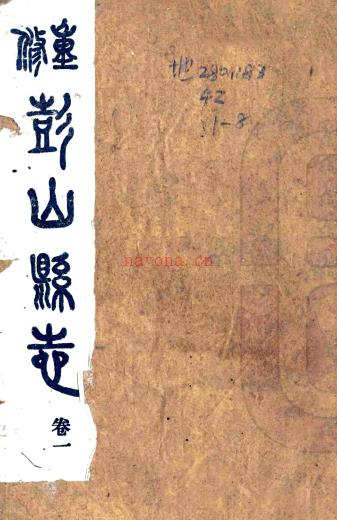 重修彭山縣志
卷一
地280.1:83
42
1-8
nayona.cn